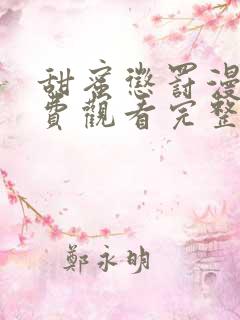 甜蜜懲罰漫
費觀看完整
鄭永明